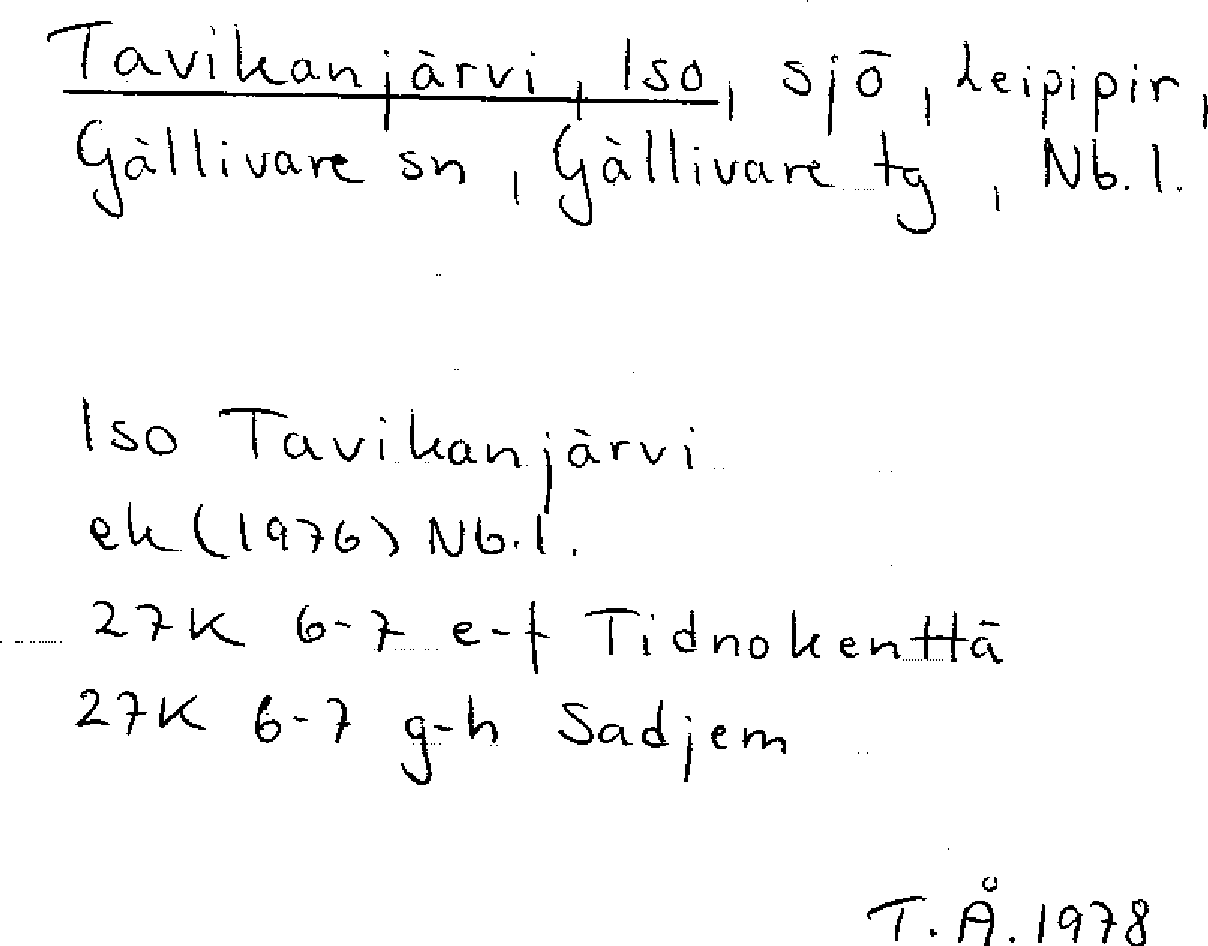 Tavikanjärvi, Iso, sjö, Leipipir,
Gällivare sn, Gällivare tg, Nb.l.
Iso Tavikanjärvi
ek (1976) Nb.l.
27K 6-7 e-f Tidnokenttä
27K 6-7 g-h Sadjem
T.Å. 1978